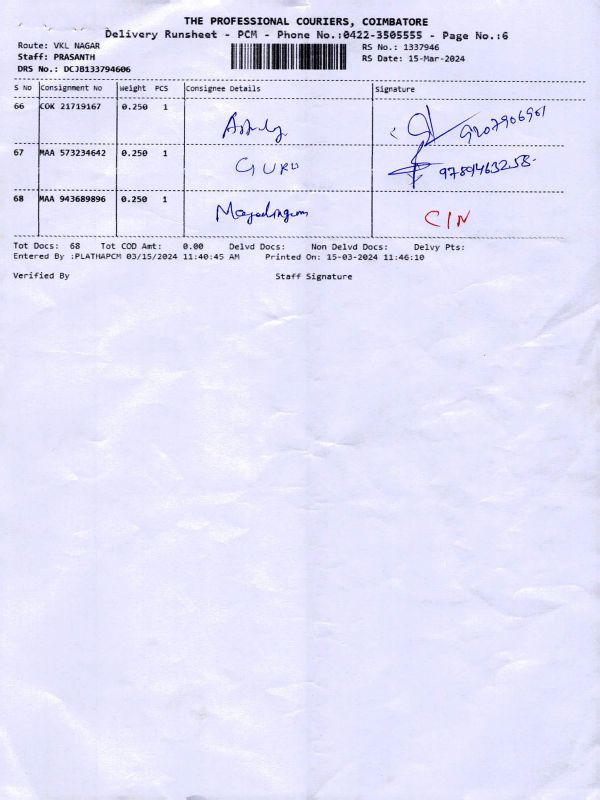 THE PROFESSIONAL COURIERS, COIMBATORE
Delivery Runsheet - PCM - Phone No.:0422-3505555 - Page No.:6
Route: VKL NAGAR
Staff: PRASANTH
DRS No.: DCJB133794606
RS No.: 1337946
RS Date: 15-Mar-2024
S No Consignment No Weight PCS Consignee Details Signature
66 COK 21719167 0.250 1
67 MAA 573234642 0.250 1 GURU
68 MAA 943689896 0.250 1 CIN
Tot Docs: 68 Tot COD Amt: 0.00 Delvd Docs: Non Delvd Docs: Delvy Pts:
Entered By :PLATHAPCM 03/15/2024 11:40:45 AM Printed On: 15-03-2024 11:46:10
Verified By Staff Signature